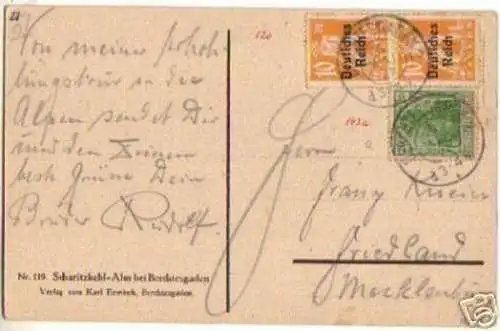 Von meiner Erhoh-
lungstour in die
Alpen sendet Dir
und den Deinen
beste Grüße Dein
Bruder Rudolf.
Nr. 119. Scharitzkehl-Alm bei Berchtesgaden
Verlag von Karl Ermisch, Berchtesgaden.
120
10 Deutsches Reich
10 Deutsches Reich
143a
Herrn
Franz
Friedland
Mecklenburg